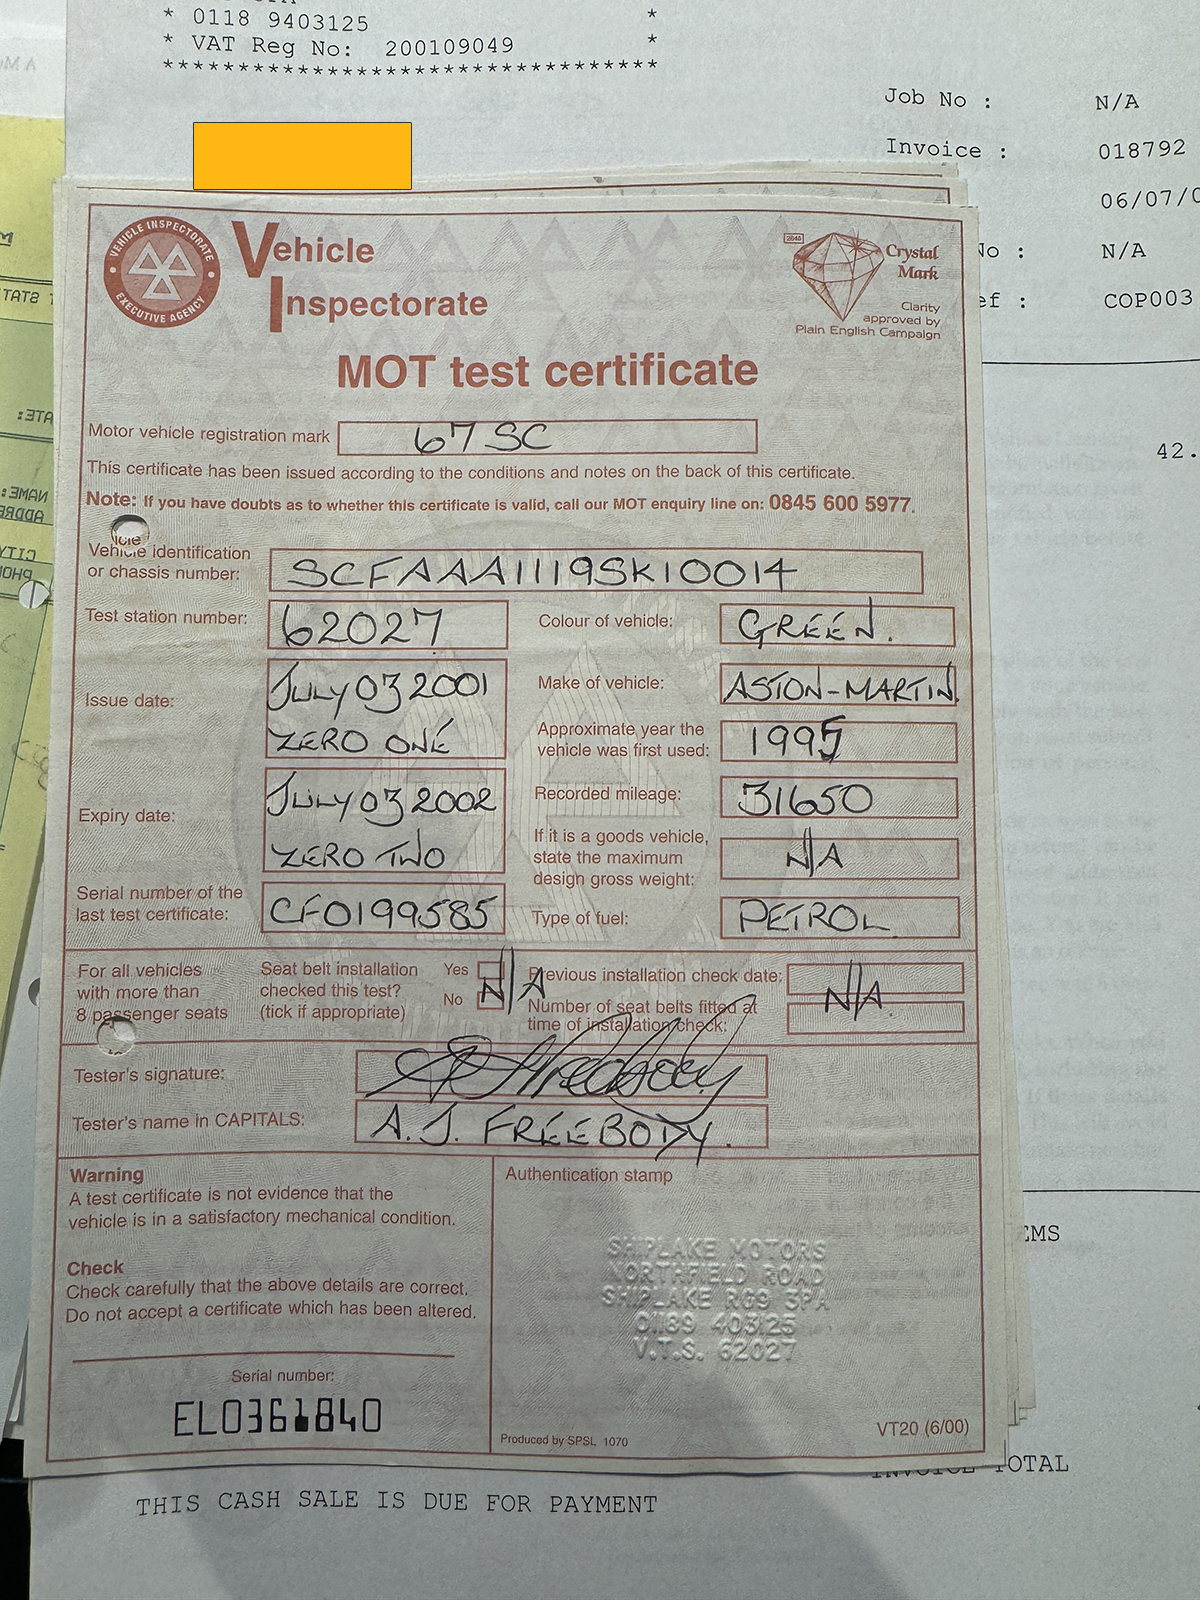 * 0118 9403125 *
* VAT Reg No: 200109049 *
*********************************
Job No : N/A
Invoice : 018792
06/07/0
No : N/A
ef : COP003
42.
VEHICLE INSPECTORATE
EXECUTIVE AGENCY
Vehicle
Inspectorate
2645
Crystal
Mark
Clarity
approved by
Plain English Campaign
MOT test certificate
Motor vehicle registration mark 67 SC
This certificate has been issued according to the conditions and notes on the back of this certificate.
Note: If you have doubts as to whether this certificate is valid, call our MOT enquiry line on: 0845 600 5977.
Vehicle identification
or chassis number: SCFAAA1119SK10014
Test station number: 62027
Colour of vehicle: GREEN.
Issue date: JULY 03 2001
ZERO ONE
Make of vehicle: ASTON-MARTIN.
Approximate year the
vehicle was first used: 1995
Expiry date: JULY 03 2002
ZERO TWO
Recorded mileage: 31650
If it is a goods vehicle,
state the maximum
design gross weight: N/A
Serial number of the
last test certificate: CF0199585
Type of fuel: PETROL.
For all vehicles
with more than
8 passenger seats
Seat belt installation
checked this test?
(tick if appropriate)
Yes
No
N/A
Previous installation check date:
Number of seat belts fitted at
time of installation check:
N/A
Tester's signature:
Tester's name in CAPITALS: A.J. FREEBODY.
Warning
A test certificate is not evidence that the
vehicle is in a satisfactory mechanical condition.
Check
Check carefully that the above details are correct.
Do not accept a certificate which has been altered.
Serial number:
EL0361840
Authentication stamp
SHIPLAKE MOTORS
NORTHFIELD ROAD
SHIPLAKE RG9 3PA
0189 403125
V.T.S. 62027
Produced by SPSL 1070
VT20 (6/00)
EMS
INVOICE TOTAL
THIS CASH SALE IS DUE FOR PAYMENT